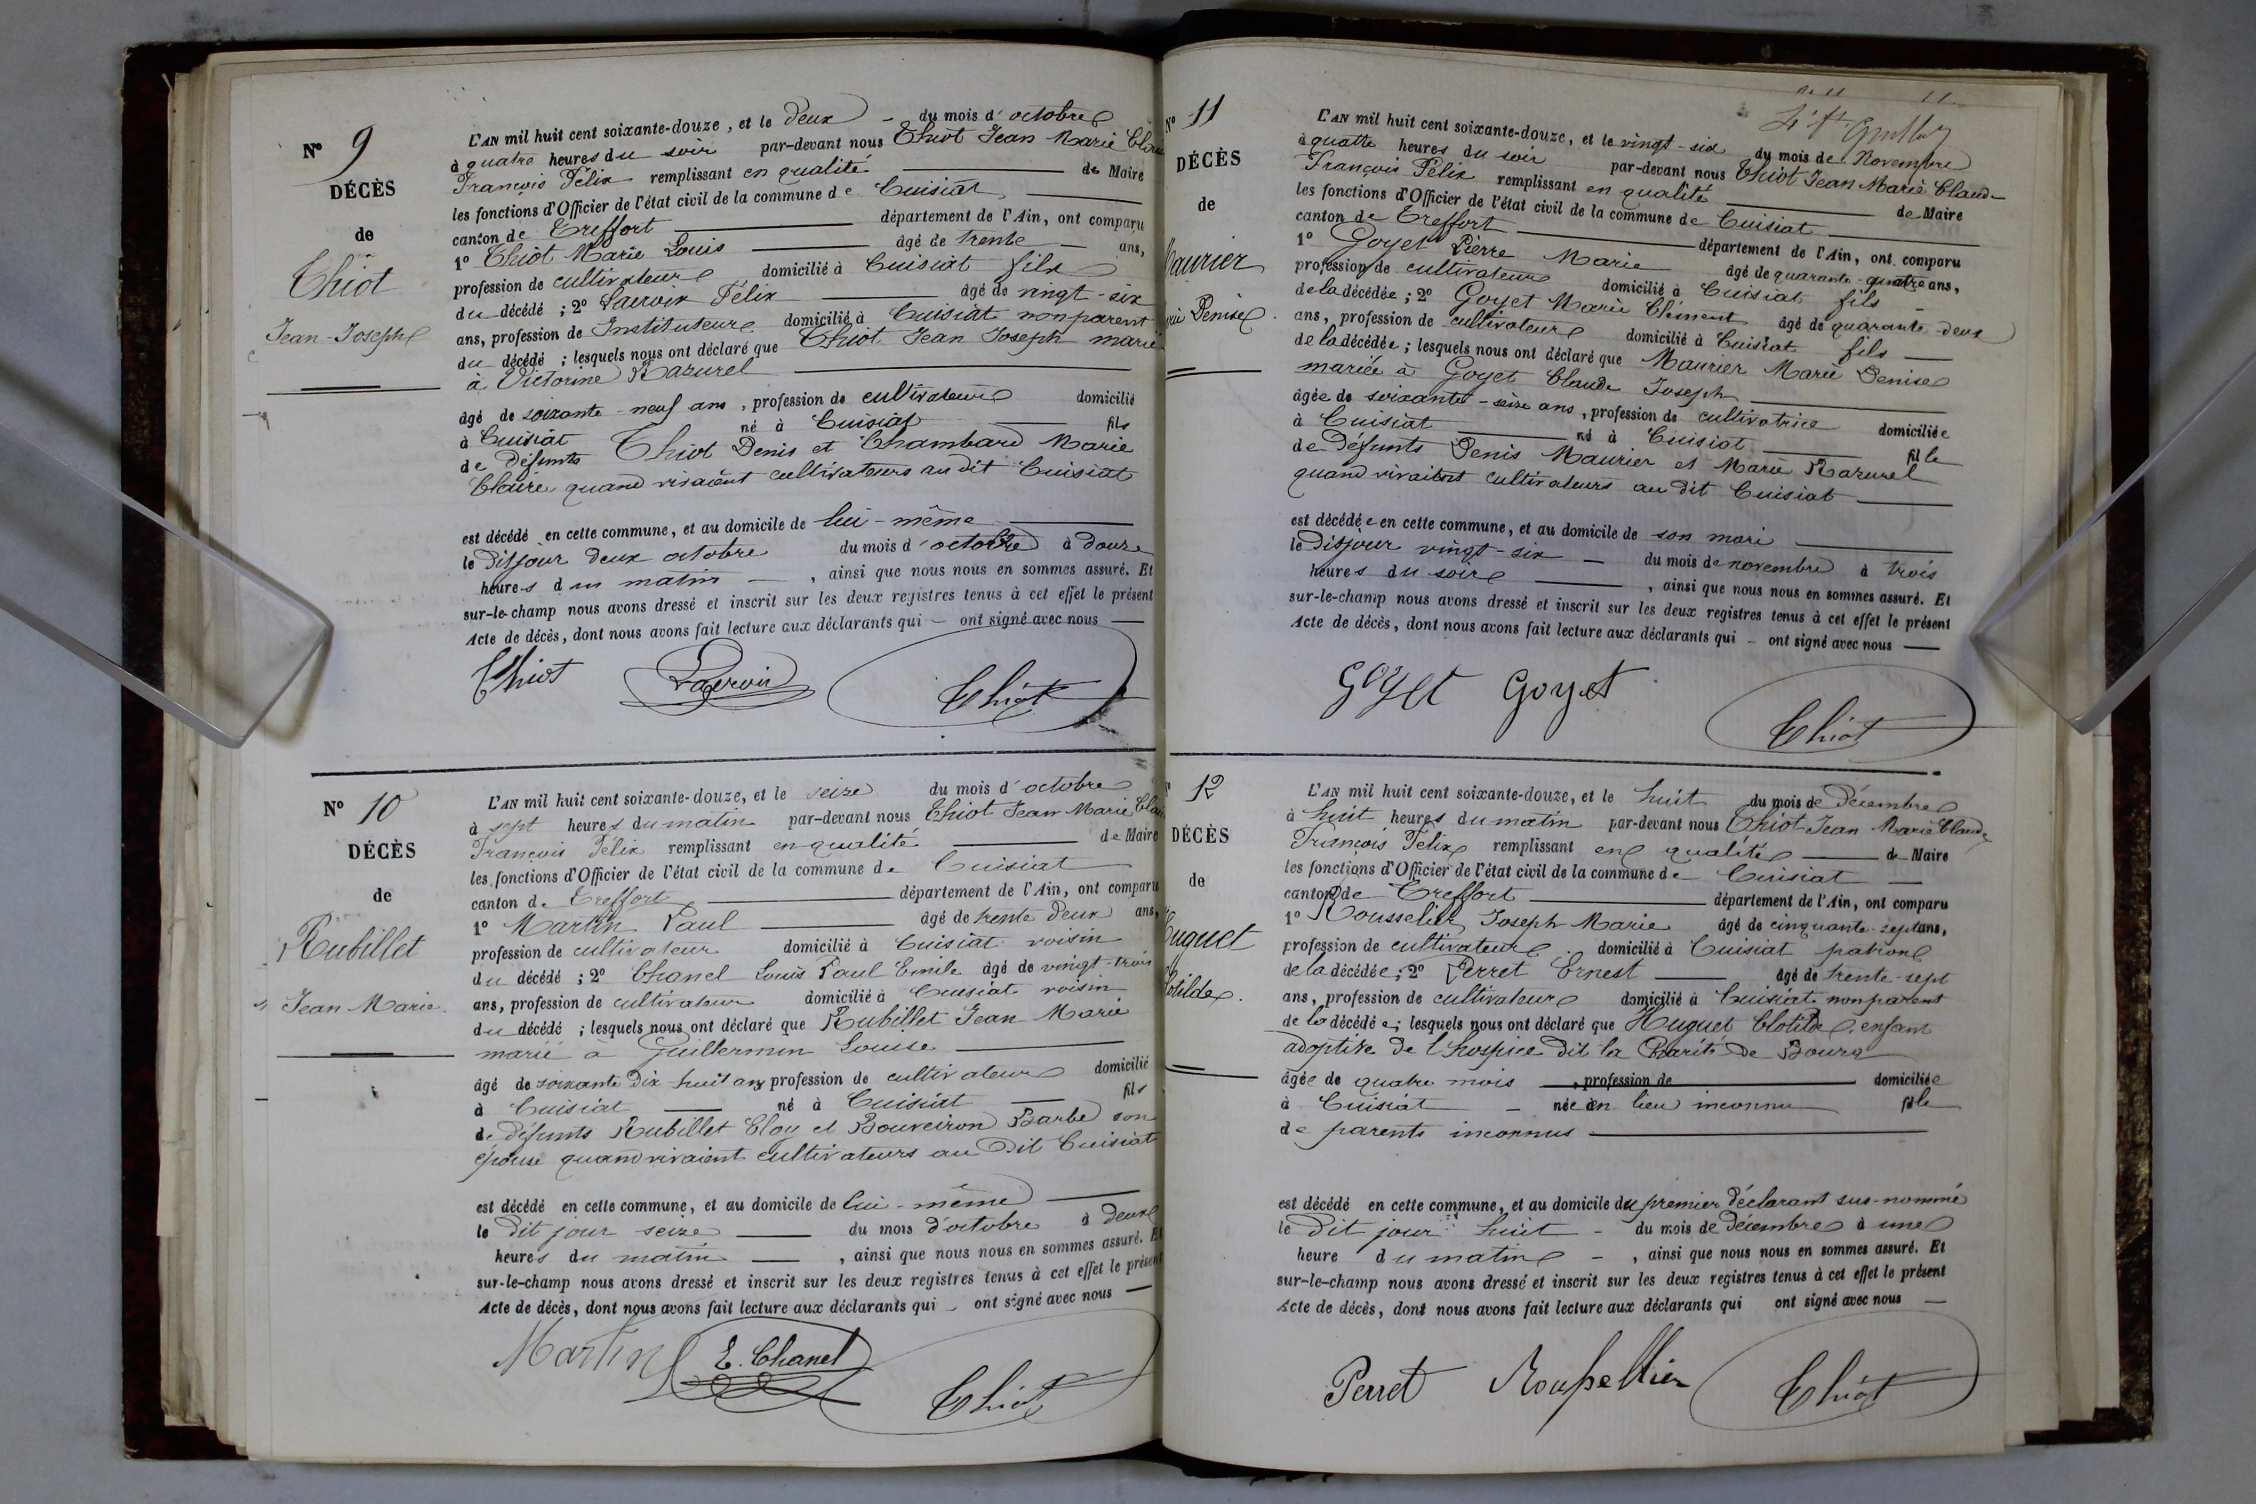 N° 9
DÉCÈS
de
Thiot
Jean-Joseph
L'AN mil huit cent soixante-douze, et le deux - du mois d'octobre
à quatre heures du soir par-devant nous Thiot Jean Marie
François Félix remplissant en qualité de Maire
les fonctions d'Officier de l'état civil de la commune de Cuisiat
canton de Treffort département de l'Ain, ont comparu
1° Thiot Marie Louis âgé de trente ans,
profession de cultivateur domicilié à Cuisiat fils
du décédé ; 2° Lacroix Félix âgé de vingt-six
ans, profession de Instituteur domicilié à Cuisiat non parent
du décédé ; lesquels nous ont déclaré que Thiot Jean Joseph marié
à Victorine Razurel
âgé de soixante-neuf ans, profession de cultivateur domicilié
à Cuisiat né à Cuisiat fils
de défunts Thiot Denis et Chambard Marie
Claire quand vivaient cultivateurs au dit Cuisiat
est décédé en cette commune, et au domicile de lui-même
le dit jour deux octobre du mois d'octobre à douze
heures du matin, ainsi que nous nous en sommes assuré. Et
sur-le-champ nous avons dressé et inscrit sur les deux registres tenus à cet effet le présent
Acte de décès, dont nous avons fait lecture aux déclarants qui - ont signé avec nous
Thiot Lacroix Thiot
N° 10
DÉCÈS
de
Rubillet
Jean Marie
L'AN mil huit cent soixante-douze, et le seize du mois d'octobre
à sept heures du matin par-devant nous Thiot Jean Marie
François Félix remplissant en qualité de Maire
les fonctions d'Officier de l'état civil de la commune de Cuisiat
canton de Treffort département de l'Ain, ont comparu
1° Martin Paul âgé de trente deux ans,
profession de cultivateur domicilié à Cuisiat voisin
du décédé ; 2° Chanel Louis Paul Emile âgé de vingt-trois
ans, profession de cultivateur domicilié à Cuisiat voisin
du décédé ; lesquels nous ont déclaré que Rubillet Jean Marie
marié à Guillermin Louise
âgé de soixante dix-huit ans profession de cultivateur domicilié
à Cuisiat né à Cuisiat fils
de défunts Rubillet Eloy et Bouveiron Barbe son
épouse quand vivaient cultivateurs au dit Cuisiat
est décédé en cette commune, et au domicile de lui-même
le dit jour seize du mois d'octobre à deux
heures du matin, ainsi que nous nous en sommes assuré. Et
sur-le-champ nous avons dressé et inscrit sur les deux registres tenus à cet effet le présent
Acte de décès, dont nous avons fait lecture aux déclarants qui - ont signé avec nous
Martin E. Chanel Thiot
N° 11
DÉCÈS
de
Maurier
Denise
L'AN mil huit cent soixante-douze, et le vingt-six du mois de Novembre
à quatre heures du soir par-devant nous Thiot Jean Marie Claude
François Félix remplissant en qualité de Maire
les fonctions d'Officier de l'état civil de la commune de Cuisiat
canton de Treffort département de l'Ain, ont comparu
1° Goyet Pierre Marie âgé de quarante-quatre ans,
profession de cultivateur domicilié à Cuisiat fils
de la décédée ; 2° Goyet Marie Clément âgé de quarante-deux
ans, profession de cultivateur domicilié à Cuisiat fils
de la décédée ; lesquels nous ont déclaré que Maurier Marie Denise
mariée à Goyet Claude Joseph
âgée de soixante-seize ans, profession de cultivatrice domiciliée
à Cuisiat né à Cuisiat fille
de défunts Denis Maurier et Marie Razurel
quand vivaient cultivateurs au dit Cuisiat
est décédée en cette commune, et au domicile de son mari
le dit jour vingt-six - du mois de novembre à trois
heures du soir, ainsi que nous nous en sommes assuré. Et
sur-le-champ nous avons dressé et inscrit sur les deux registres tenus à cet effet le présent
Acte de décès, dont nous avons fait lecture aux déclarants qui - ont signé avec nous
Goyet Goyet Thiot
12
DÉCÈS
de
Huguet
Clotilde
L'AN mil huit cent soixante-douze, et le huit du mois de Décembre
à huit heures du matin par-devant nous Thiot Jean Marie Claude
François Félix remplissant en qualité de Maire
les fonctions d'Officier de l'état civil de la commune de Cuisiat
canton de Treffort département de l'Ain, ont comparu
1° Joseph Marie âgé de cinquante-sept ans,
profession de cultivateur domicilié à Cuisiat patron
de la décédée ; 2° Perret Ernest âgé de trente-sept
ans, profession de cultivateur domicilié à Cuisiat non parent
de la décédée ; lesquels nous ont déclaré que Huguet Clotilde, enfant
adoptive de l'hospice dit la Charité de Bourg
âgée de quatre mois, profession de domiciliée
à Cuisiat - née en lieu inconnu fille
de parents inconnus
est décédé en cette commune, et au domicile du premier déclarant sus-nommé
le dit jour huit - du mois de Décembre à une
heure du matin -, ainsi que nous nous en sommes assuré. Et
sur-le-champ nous avons dressé et inscrit sur les deux registres tenus à cet effet le présent
Acte de décès, dont nous avons fait lecture aux déclarants qui ont signé avec nous
Perret Thiot